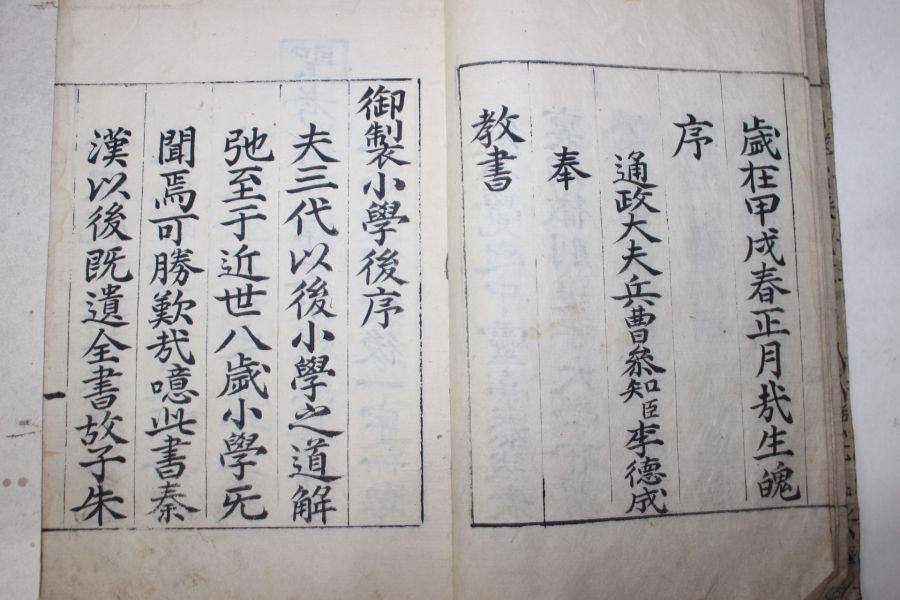 歲在甲戌春正月哉生魄
序
通政大夫兵曹參知臣李德成
奉
教書
御製小學後序
夫三代以後小學之道解
弛至于近世八歲小學旡
聞焉可勝歎㢤噫此書秦
漢以後旣遺全書故子朱
一